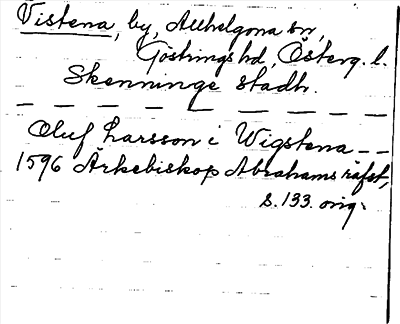 Vistena, by, Allhelgona sn,
Göstrings hd, Österg. l.
Skenninge stadh.
Oluf Larsson i Wigstena _ _
1596 Ärkebiskop Abrahams räfst,
s. 133. orig.